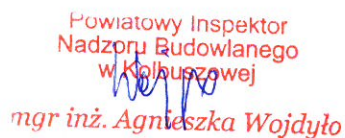 Powiatowy Inspektor
Nadzoru Budowlanego
w Kolbuszowej
mgr inż. Agnieszka Wojdyło